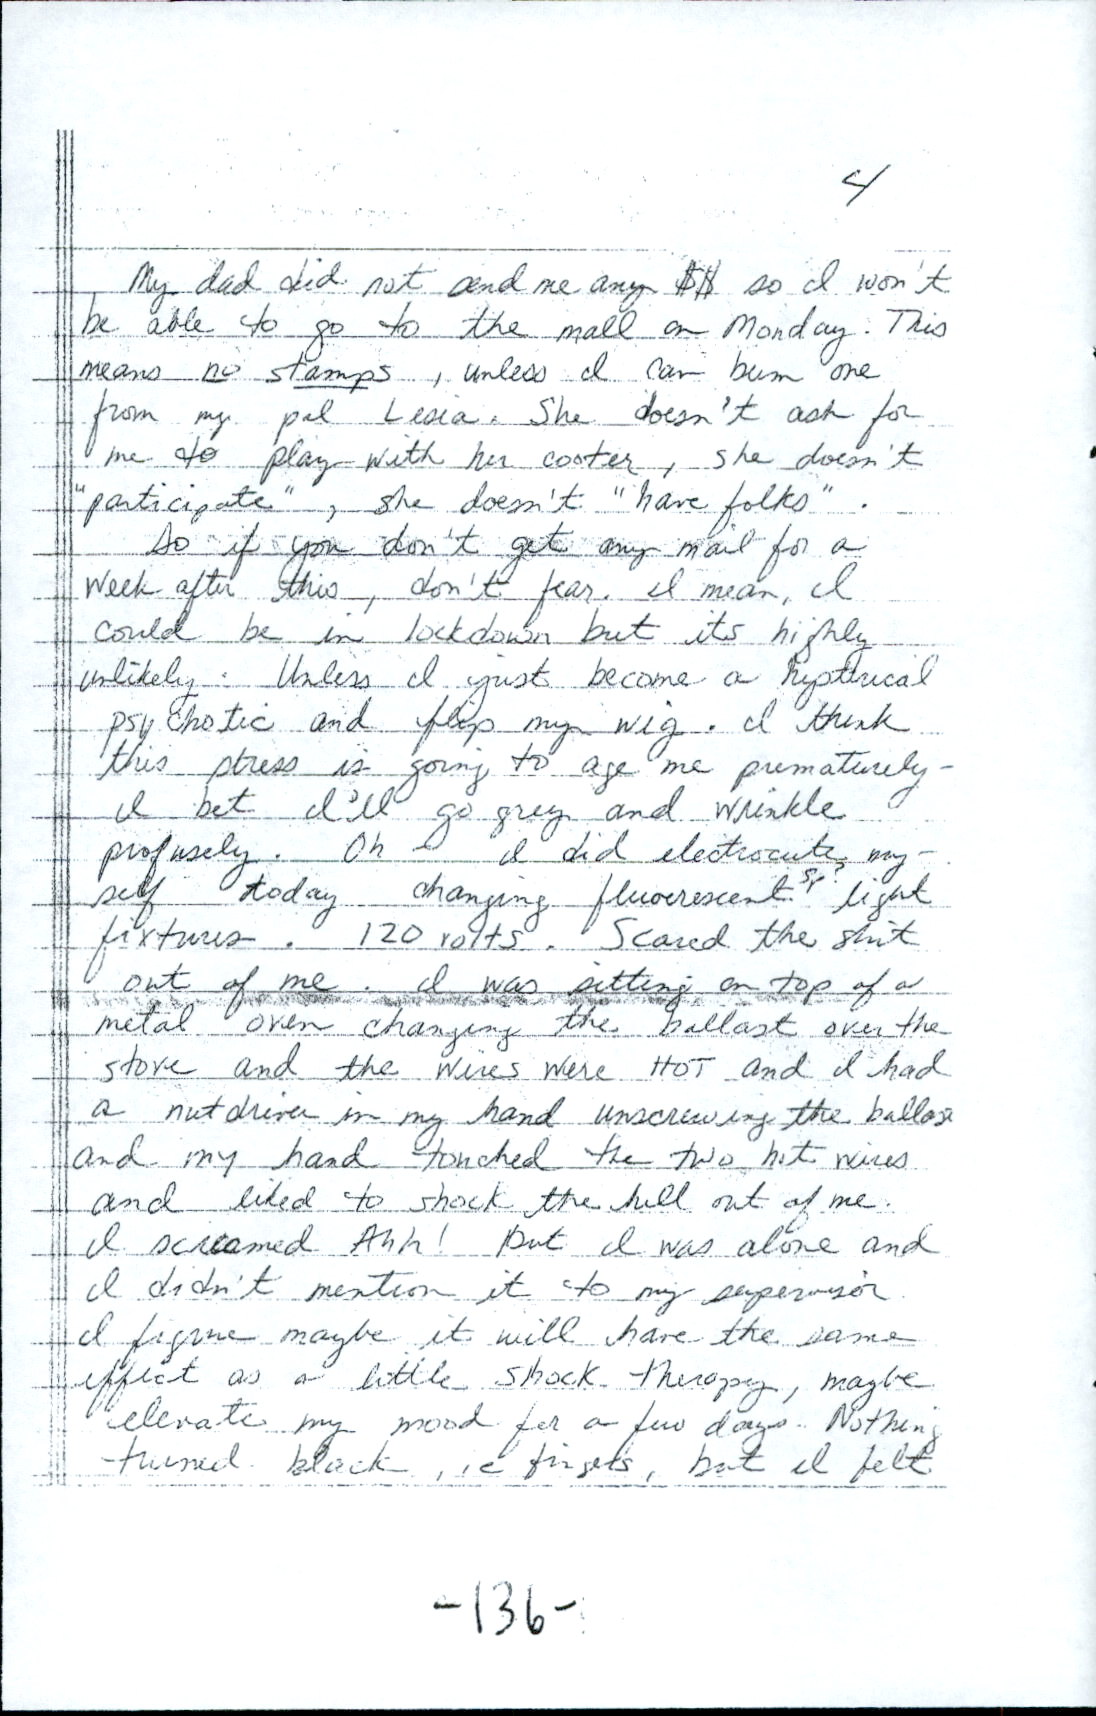 4/
My dad did not send me any $$ so I won't
be able to go to the mall on Monday. This
means no stamps, unless I can bum one
from my pal Lesia. She doesn't ask for
me to play with her cooter, she doesn't
"participate", she doesn't "have folks".
So if you don't get any mail for a
week after this, don't fear. I mean, I
could be in lockdown but its highly
unlikely. Unless I just become a hysterical
psychotic and flip my wig. I think
this stress is going to age me prematurely-
I bet I'll go grey and wrinkle
profusely. Oh - I did electrocute my-
self today changing fluoerescent sp? light
fixtures. 120 volts. Scared the shit
out of me. I was sitting on top of a
metal oven changing the ballast over the
stove and the wires were HOT and I had
a nutdriver in my hand unscrewing the ballast
and my hand touched the two hot wires
and liked to shock the hell out of me.
I screamed Ahh! But I was alone and
I didn't mention it to my supervisor.
I figure maybe it will have the same
effect as a little shock therapy, maybe
elevate my mood for a few days. Nothing
turned black, ie fingers, but I felt
-136-